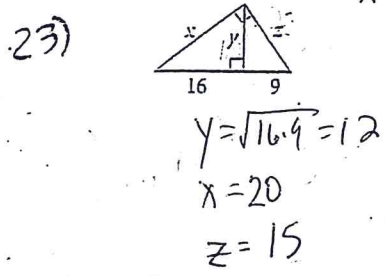 23)
x y z
16 9
y = √16·9 = 12
x = 20
z = 15